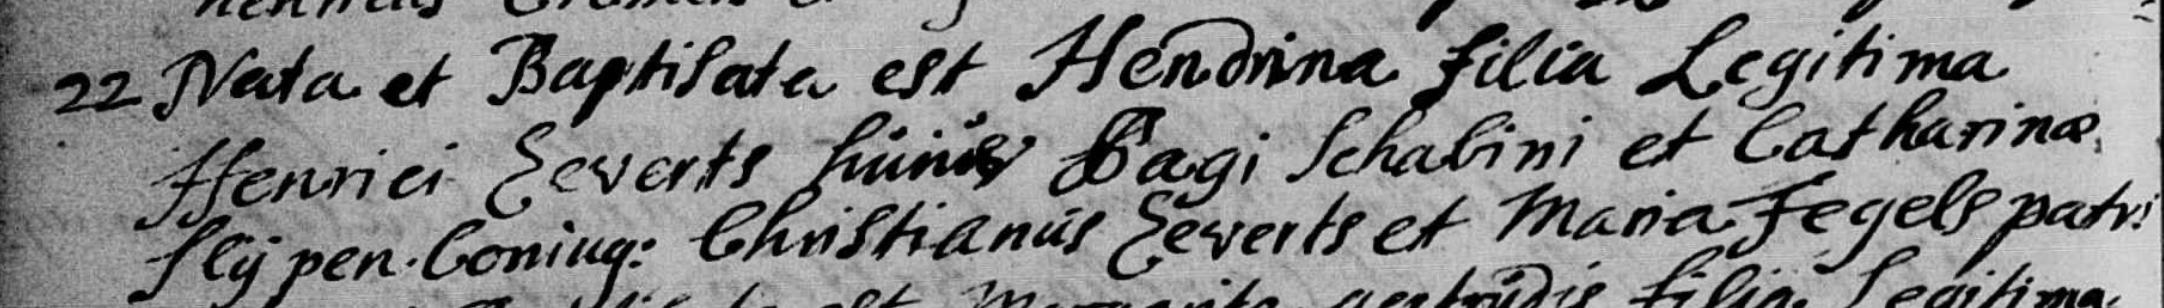 22 Nata et Baptisata est Hendrina filia Legitima
Henrici Eeverts huius Pagi Schabini et Catharinæ
slijpen. Coniug: Christianus Eeverts et Maria Fegels patri
gertrudis filia Legitima